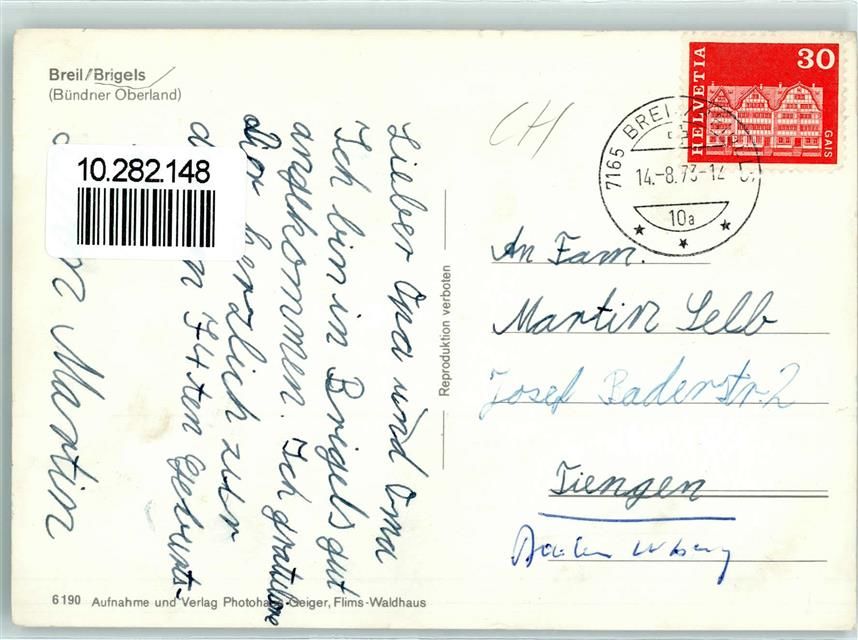 Breil/Brigels
(Bündner Oberland)
10.282.148
Lieber Opa und Oma
Ich bin in Brigels gut
angekommen. Ich gratuliere
Dir herzlich zur
74sten Geburts-
Martin
6190 Aufnahme und Verlag Photohaus Geiger, Flims-Waldhaus
Reproduktion verboten
CH
HELVETIA
30
GAIS
7165 BREI
14.-8.73-12
10a
An Fam.
Martin Selb
Josef Baderstr. 2
Tiengen